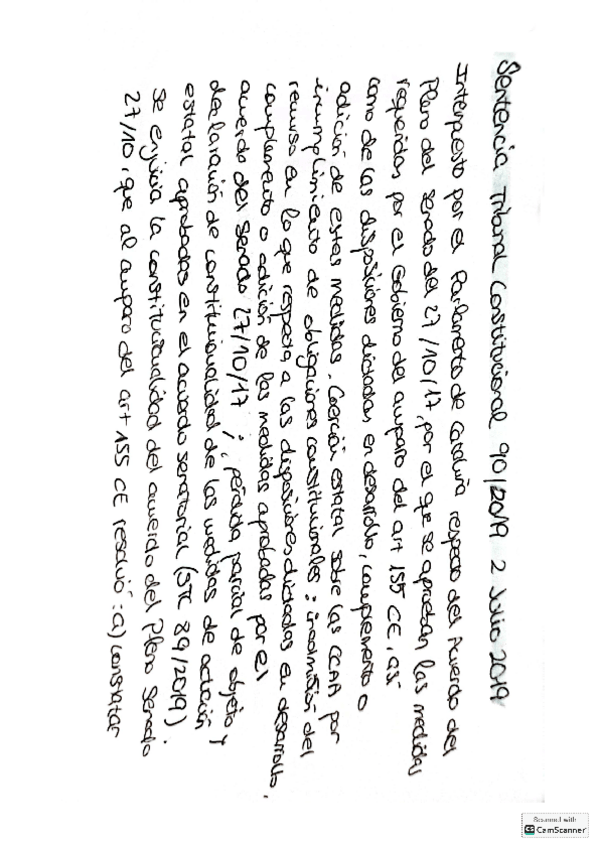 Sentencia Tribunal Constitucional 90/2019 2 Julio 2019
Interpuesto por el Parlamento de Cataluña respecto del Acuerdo del
Pleno del Senado del 27/10/17, por el que se aprueban las medidas
requeridas por el Gobierno del amparo del art 155 CE, así
como de las disposiciones dictadas en desarrollo, complemento o
adición de estas medidas. Coerción estatal sobre las CCAA por
incumplimiento de obligaciones constitucionales: inadmisión del
recurso en lo que respecta a las disposiciones dictadas en desarrollo,
complemento o adición de las medidas aprobadas por el
acuerdo del Senado 27/10/17; pérdida parcial de objeto y
declaración de constitucionalidad de las medidas de actuación
estatal aprobadas en el acuerdo senatorial (STC 89/2019).
Se enjuicia la constitucionalidad del acuerdo del Pleno Senado
27/10, que al amparo del art 155 CE resolvió: a) constatar
Scanned with
CS CamScanner